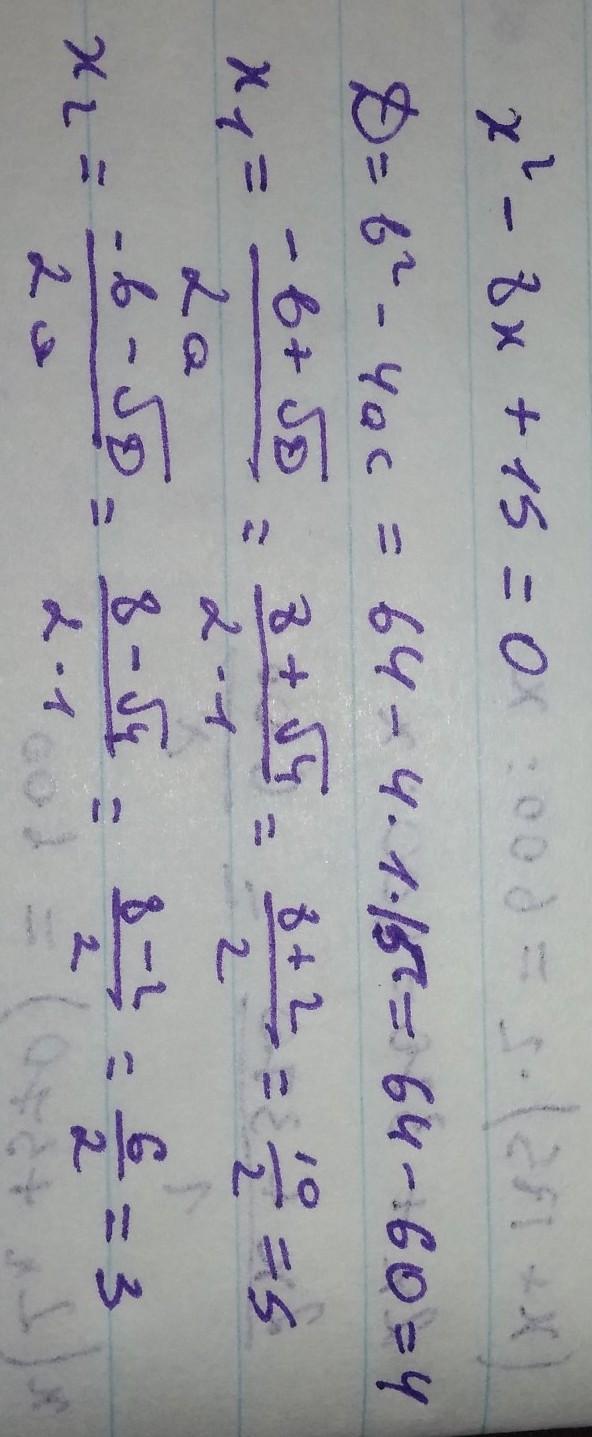 x² - 8x + 15 = 0
D = b² - 4ac = 64 - 4·1·15 = 64 - 60 = 4
x1 = (-b + √D)/(2a) = (8 + √4)/(2·1) = (8 + 2)/2 = 10/2 = 5
x2 = (-b - √D)/(2a) = (8 - √4)/(2·1) = (8 - 2)/2 = 6/2 = 3